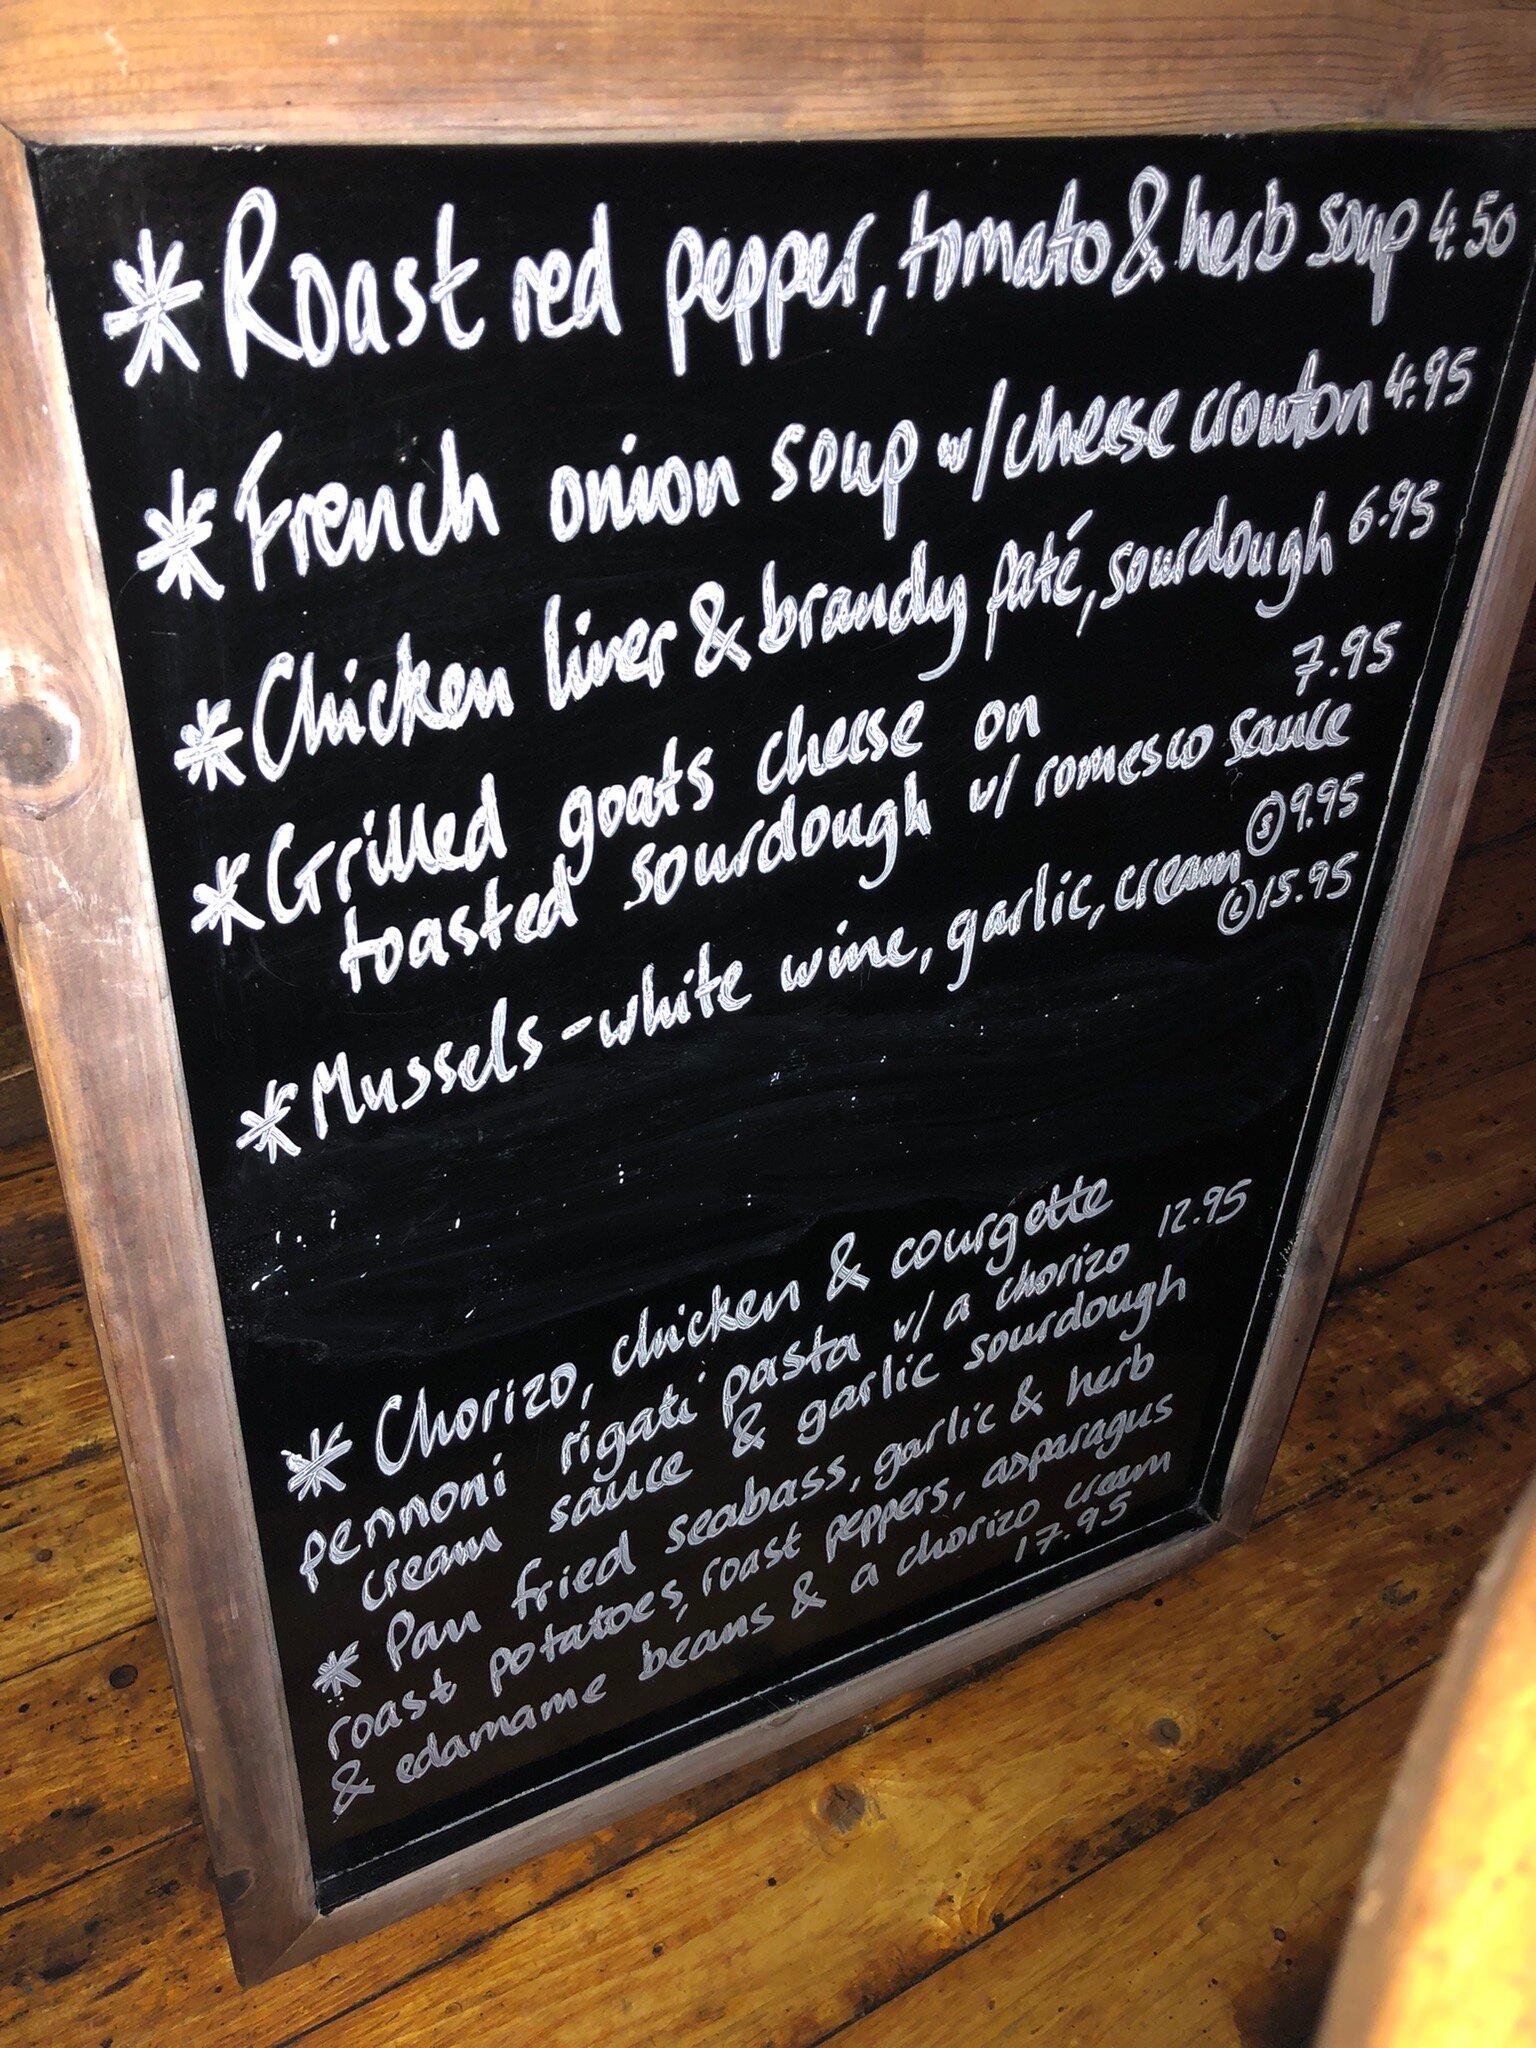 * Roast red pepper, tomato & herb soup 4.50
* French onion soup w/ cheese crouton 4.95
* Chicken liver & brandy paté, sourdough 6.95
* Grilled goats cheese on 7.95
toasted sourdough w/ romesco sauce
* Mussels - white wine, garlic, cream Ⓢ 9.95
Ⓛ 15.95
* Chorizo, chicken & courgette
pennoni rigati pasta w/ a chorizo 12.95
cream sauce & garlic sourdough
* Pan fried seabass, garlic & herb
roast potatoes, roast peppers, asparagus
& edamame beans & a chorizo cream
17.95